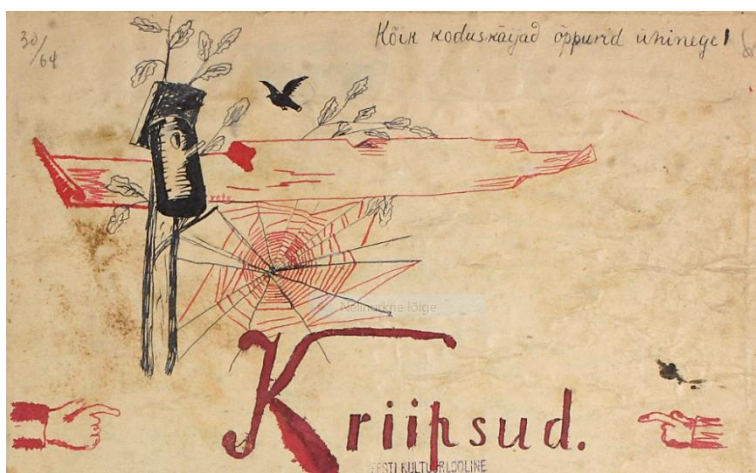 30/64
Kõik koduskäijad õppurid ühinege!
Nelinurkne lõige
Kriipsud.
EESTI KULTUURLOOLINE